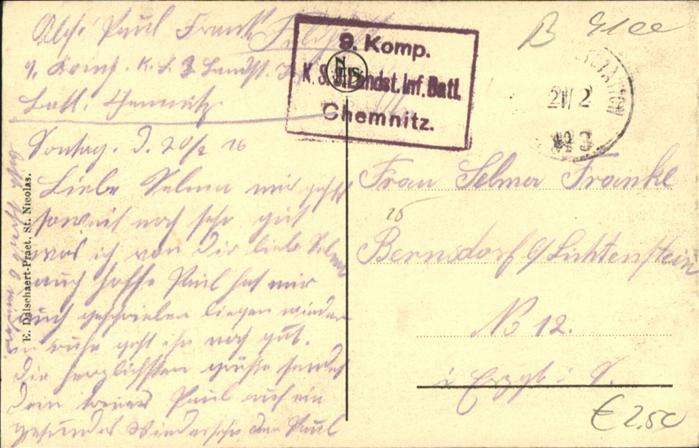 Abs. Paul Frank
9. Komp. K. S. 3 Landst.
Batl. Chemnitz
9. Komp.
K. S. Landst. Inf. Batl.
Chemnitz.
B 9100
21/2
Sontag. d. 20/2 16
Liebe Selma mir geht
soweit noch sehr gut
was ich von dir liebe Selma
auch hoffe Paul hat mir
auch geschrieben liegen wieder
in ruhe geht ihr noch gut.
die herzlichsten grüße sendet
dein Paul auf ein
gesundes Wiedersehn der Paul
E. Dhischaert-Praet, St. Nicolas.
Frau Selma Franke
Berndorf b/Lichtenstein
No 12.
i Erzgb. i S.
€ 2.50